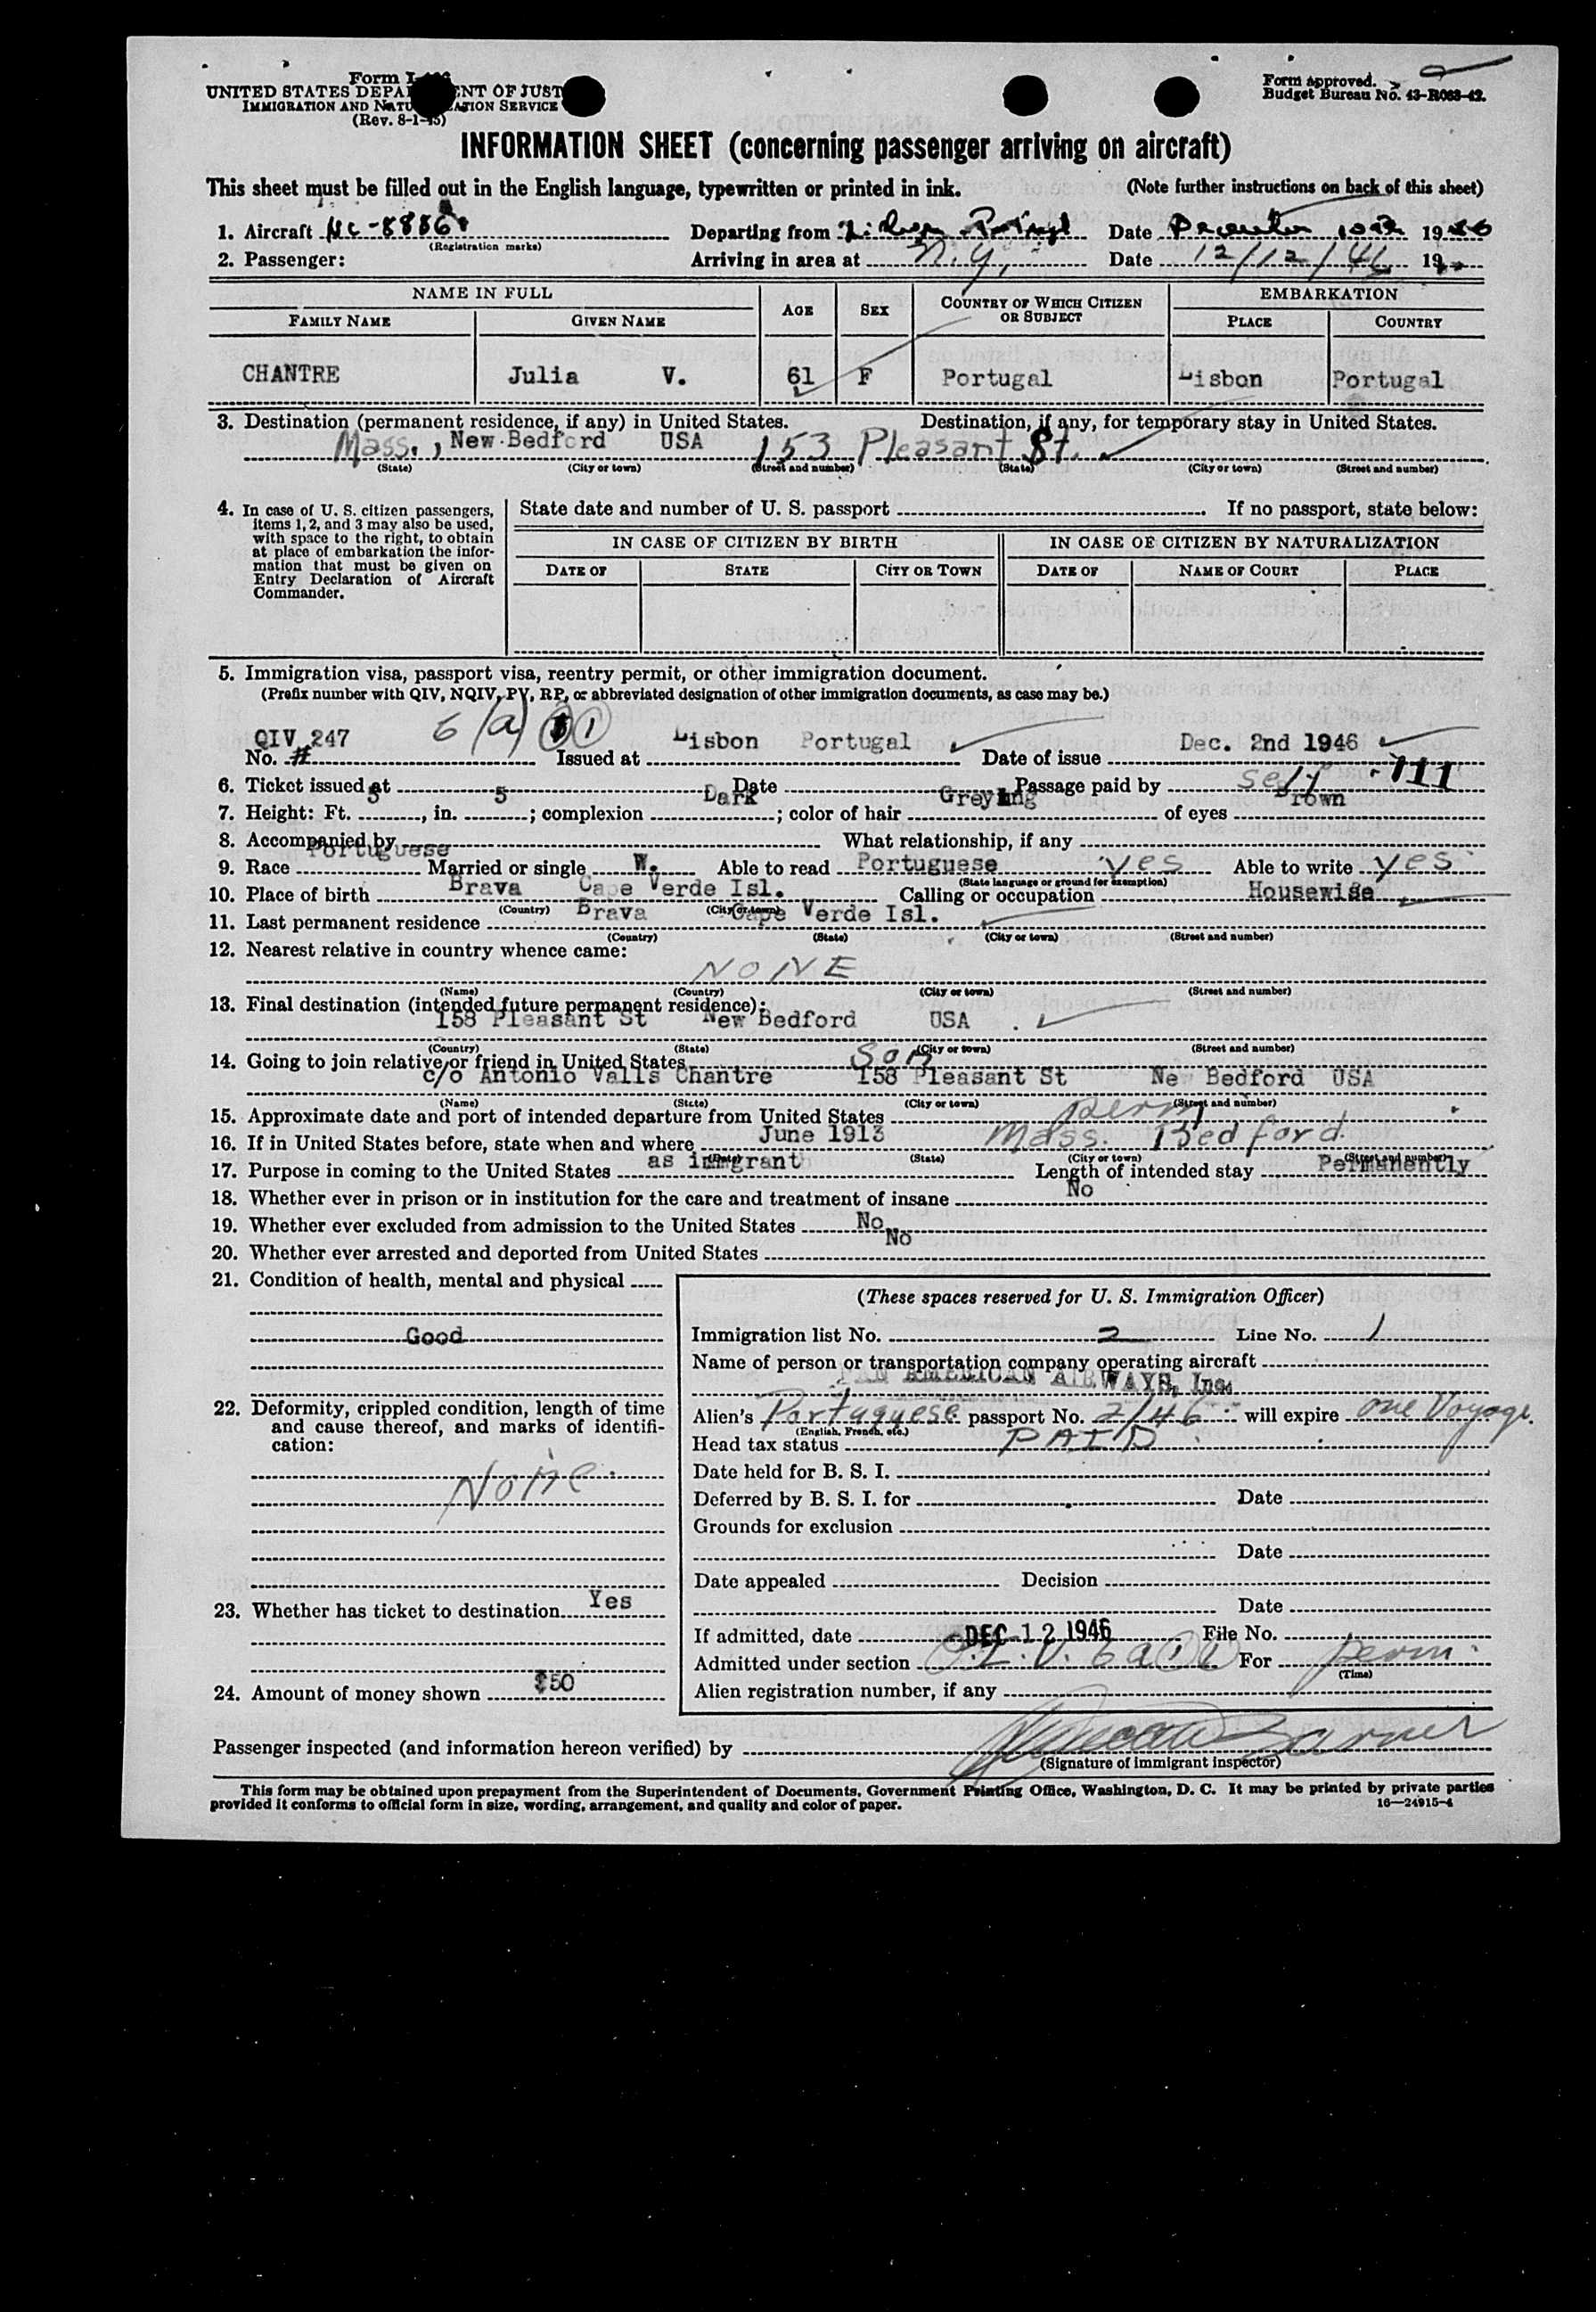 Form I-
UNITED STATES DEPA NT OF JUST
IMMIGRATION AND NATU ATION SERVICE
(Rev. 8-1-45)
Form approved.
Budget Bureau No. 43-R063-42.
INFORMATION SHEET (concerning passenger arriving on aircraft)
This sheet must be filled out in the English language, typewritten or printed in ink. (Note further instructions on back of this sheet)
1. Aircraft NC-8886 Departing from Lisbon Portugal Date December 10th 1946
(Registration marks)
2. Passenger: Arriving in area at N.Y. Date 12/12/46 19
NAME IN FULL AGE SEX COUNTRY OF WHICH CITIZEN OR SUBJECT EMBARKATION
FAMILY NAME GIVEN NAME PLACE COUNTRY
CHANTRE Julia V. 61 F Portugal Lisbon Portugal
3. Destination (permanent residence, if any) in United States. Destination, if any, for temporary stay in United States.
Mass., New Bedford USA 153 Pleasant St.
(State) (City or town) (Street and number) (State) (City or town) (Street and number)
4. In case of U. S. citizen passengers,
items 1, 2, and 3 may also be used,
with space to the right, to obtain
at place of embarkation the infor-
mation that must be given on
Entry Declaration of Aircraft
Commander.
State date and number of U. S. passport . If no passport, state below:
IN CASE OF CITIZEN BY BIRTH IN CASE OF CITIZEN BY NATURALIZATION
DATE OF STATE CITY OR TOWN DATE OF NAME OF COURT PLACE
5. Immigration visa, passport visa, reentry permit, or other immigration document.
(Prefix number with QIV, NQIV, PV, RP, or abbreviated designation of other immigration documents, as case may be.)
QIV 247 6 (a) 1 Lisbon Portugal Dec. 2nd 1946
No. # Issued at Date of issue
6. Ticket issued at Date Passage paid by self 111
7. Height: Ft. 5, in. 5; complexion Dark; color of hair Greying of eyes Brown
8. Accompanied by What relationship, if any
9. Race Portuguese Married or single W. Able to read Portuguese yes Able to write yes
(State language or ground for exemption)
10. Place of birth Brava Cape Verde Isl. Calling or occupation Housewife
(Country) (City or town)
11. Last permanent residence Brava Cape Verde Isl.
(Country) (State) (City or town) (Street and number)
12. Nearest relative in country whence came:
NONE
(Name) (Country) (City or town) (Street and number)
13. Final destination (intended future permanent residence):
158 Pleasant St New Bedford USA
(Country) (State) (City or town) (Street and number)
14. Going to join relative or friend in United States Son
c/o Antonio Valls Chantre 158 Pleasant St Ne Bedford USA
(Name) (State) (City or town) (Street and number)
15. Approximate date and port of intended departure from United States perm
16. If in United States before, state when and where June 1913 Mass. Bedford.
(Date) (State) (City or town) (Street and number)
17. Purpose in coming to the United States as immgrant Length of intended stay Permanently
18. Whether ever in prison or in institution for the care and treatment of insane No
19. Whether ever excluded from admission to the United States No
20. Whether ever arrested and deported from United States No
21. Condition of health, mental and physical
Good
22. Deformity, crippled condition, length of time
and cause thereof, and marks of identifi-
cation:
None
23. Whether has ticket to destination Yes
24. Amount of money shown $50
(These spaces reserved for U. S. Immigration Officer)
Immigration list No. 2 Line No. 1
Name of person or transportation company operating aircraft
PAN AMERICAN AIRWAYS, Inc.
Alien's Portuguese passport No. 2/46 will expire one Voyage.
(English, French, etc.)
Head tax status PAID
Date held for B. S. I.
Deferred by B. S. I. for Date
Grounds for exclusion
Date
Date appealed Decision
Date
If admitted, date DEC 12 1946 File No.
Admitted under section 6 a For perm.
(Time)
Alien registration number, if any
Passenger inspected (and information hereon verified) by
(Signature of immigrant inspector)
This form may be obtained upon prepayment from the Superintendent of Documents, Government Printing Office, Washington, D. C. It may be printed by private parties
provided it conforms to official form in size, wording, arrangement, and quality and color of paper. 16—24915-4